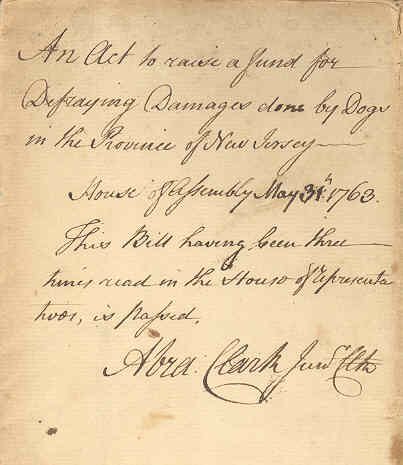 An Act to raise a fund for
Defraying Damages done by Dogs
in the Province of New Jersey
House of Assembly May 31st. 1763.
This Bill having been three
times read in the House of representa
tives, is passed.
Abra. Clark Junr. Clk